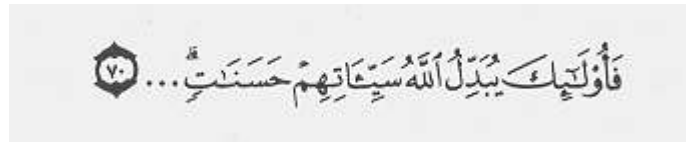 فَأُوْلَـٰٓئِكَ يُبَدِّلُ ٱللَّهُ سَيِّـَٔاتِهِمْ حَسَنَـٰتٍۗ ... ٧٠